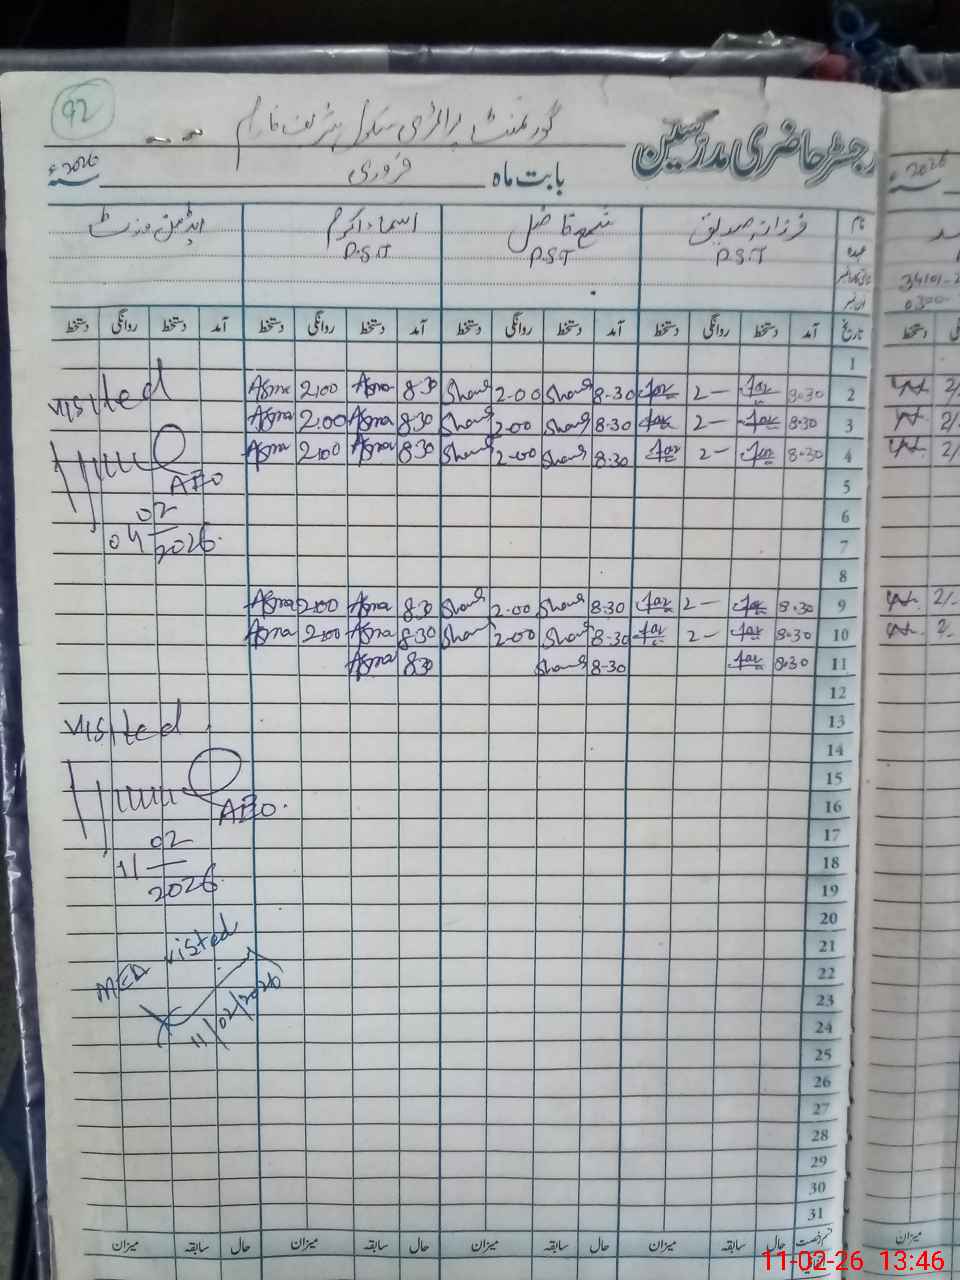 92
گورنمنٹ پرائمری سکول شریف فارم
رجسٹر حاضری مدرسین
بابت ماہ فروری 2026ء
نام فرزانہ صدیق شمع فاضل اسماء اکرم ایڈمن وزٹ
عہدہ P.S.T P.S.T P.S.T
تاریخ آمد دستخط روانگی دستخط آمد دستخط روانگی دستخط آمد دستخط روانگی دستخط آمد دستخط روانگی دستخط
1
2 8.30 Far 2 — Far 8.30 Sham 2.00 Sham 8.30 Asma 2.00 Asma
3 8.30 Far 2 — Far 8.30 Sham 2.00 Sham 8.30 Asma 2.00 Asma
4 8.30 Far 2 — Far 8.30 Sham 2.00 Sham 8.30 Asma 2.00 Asma
5
6
7
8
9 8.30 Far 2 — Far 8.30 Sham 2.00 Sham 8.30 Asma 2.00 Asma
10 8.30 Far 2 — Far 8.30 Sham 2.00 Sham 8.30 Asma 2.00 Asma
11 8.30 Far 8.30 Sham 8.30 Asma
12
13
14
15
16
17
18
19
20
21
22
23
24
25
26
27
28
29
30
31
visited
AEO
04/02/2026
visited
AEO.
11/02/2026
MEA visted
11/02/2026
حال سابقہ میزان حال سابقہ میزان حال سابقہ میزان حال سابقہ میزان
2026ء
34101-2
0300-
دستخط
2/
2/
2/
2/
2/
میزان
11-02-26 13:46